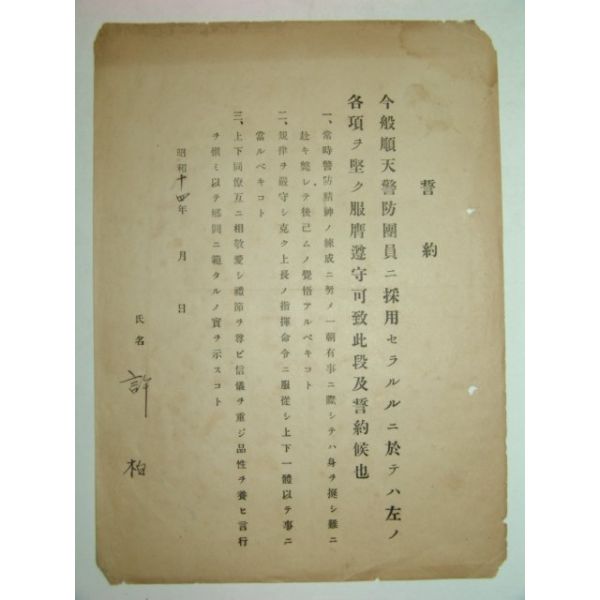 誓約
今般順天警防團員ニ採用セラルルニ於テハ左ノ
各項ヲ堅ク服膺遵守可致此段及誓約候也
一、常時警防精神ノ練成ニ努メ一朝有事ニ際シテハ身ヲ挺シ難ニ
赴キ斃レテ後已ムノ覺悟アルベキコト
二、規律ヲ嚴守シ克ク上長ノ指揮命令ニ服從シ上下一體以テ事ニ
當ルベキコト
三、上下同僚互ニ相敬愛シ禮節ヲ尊ビ信儀ヲ重ジ品性ヲ養ヒ言行
ヲ愼ミ以テ鄕閭ニ範タルノ實ヲ示スコト
昭和十四年 月 日
氏名 許 柏